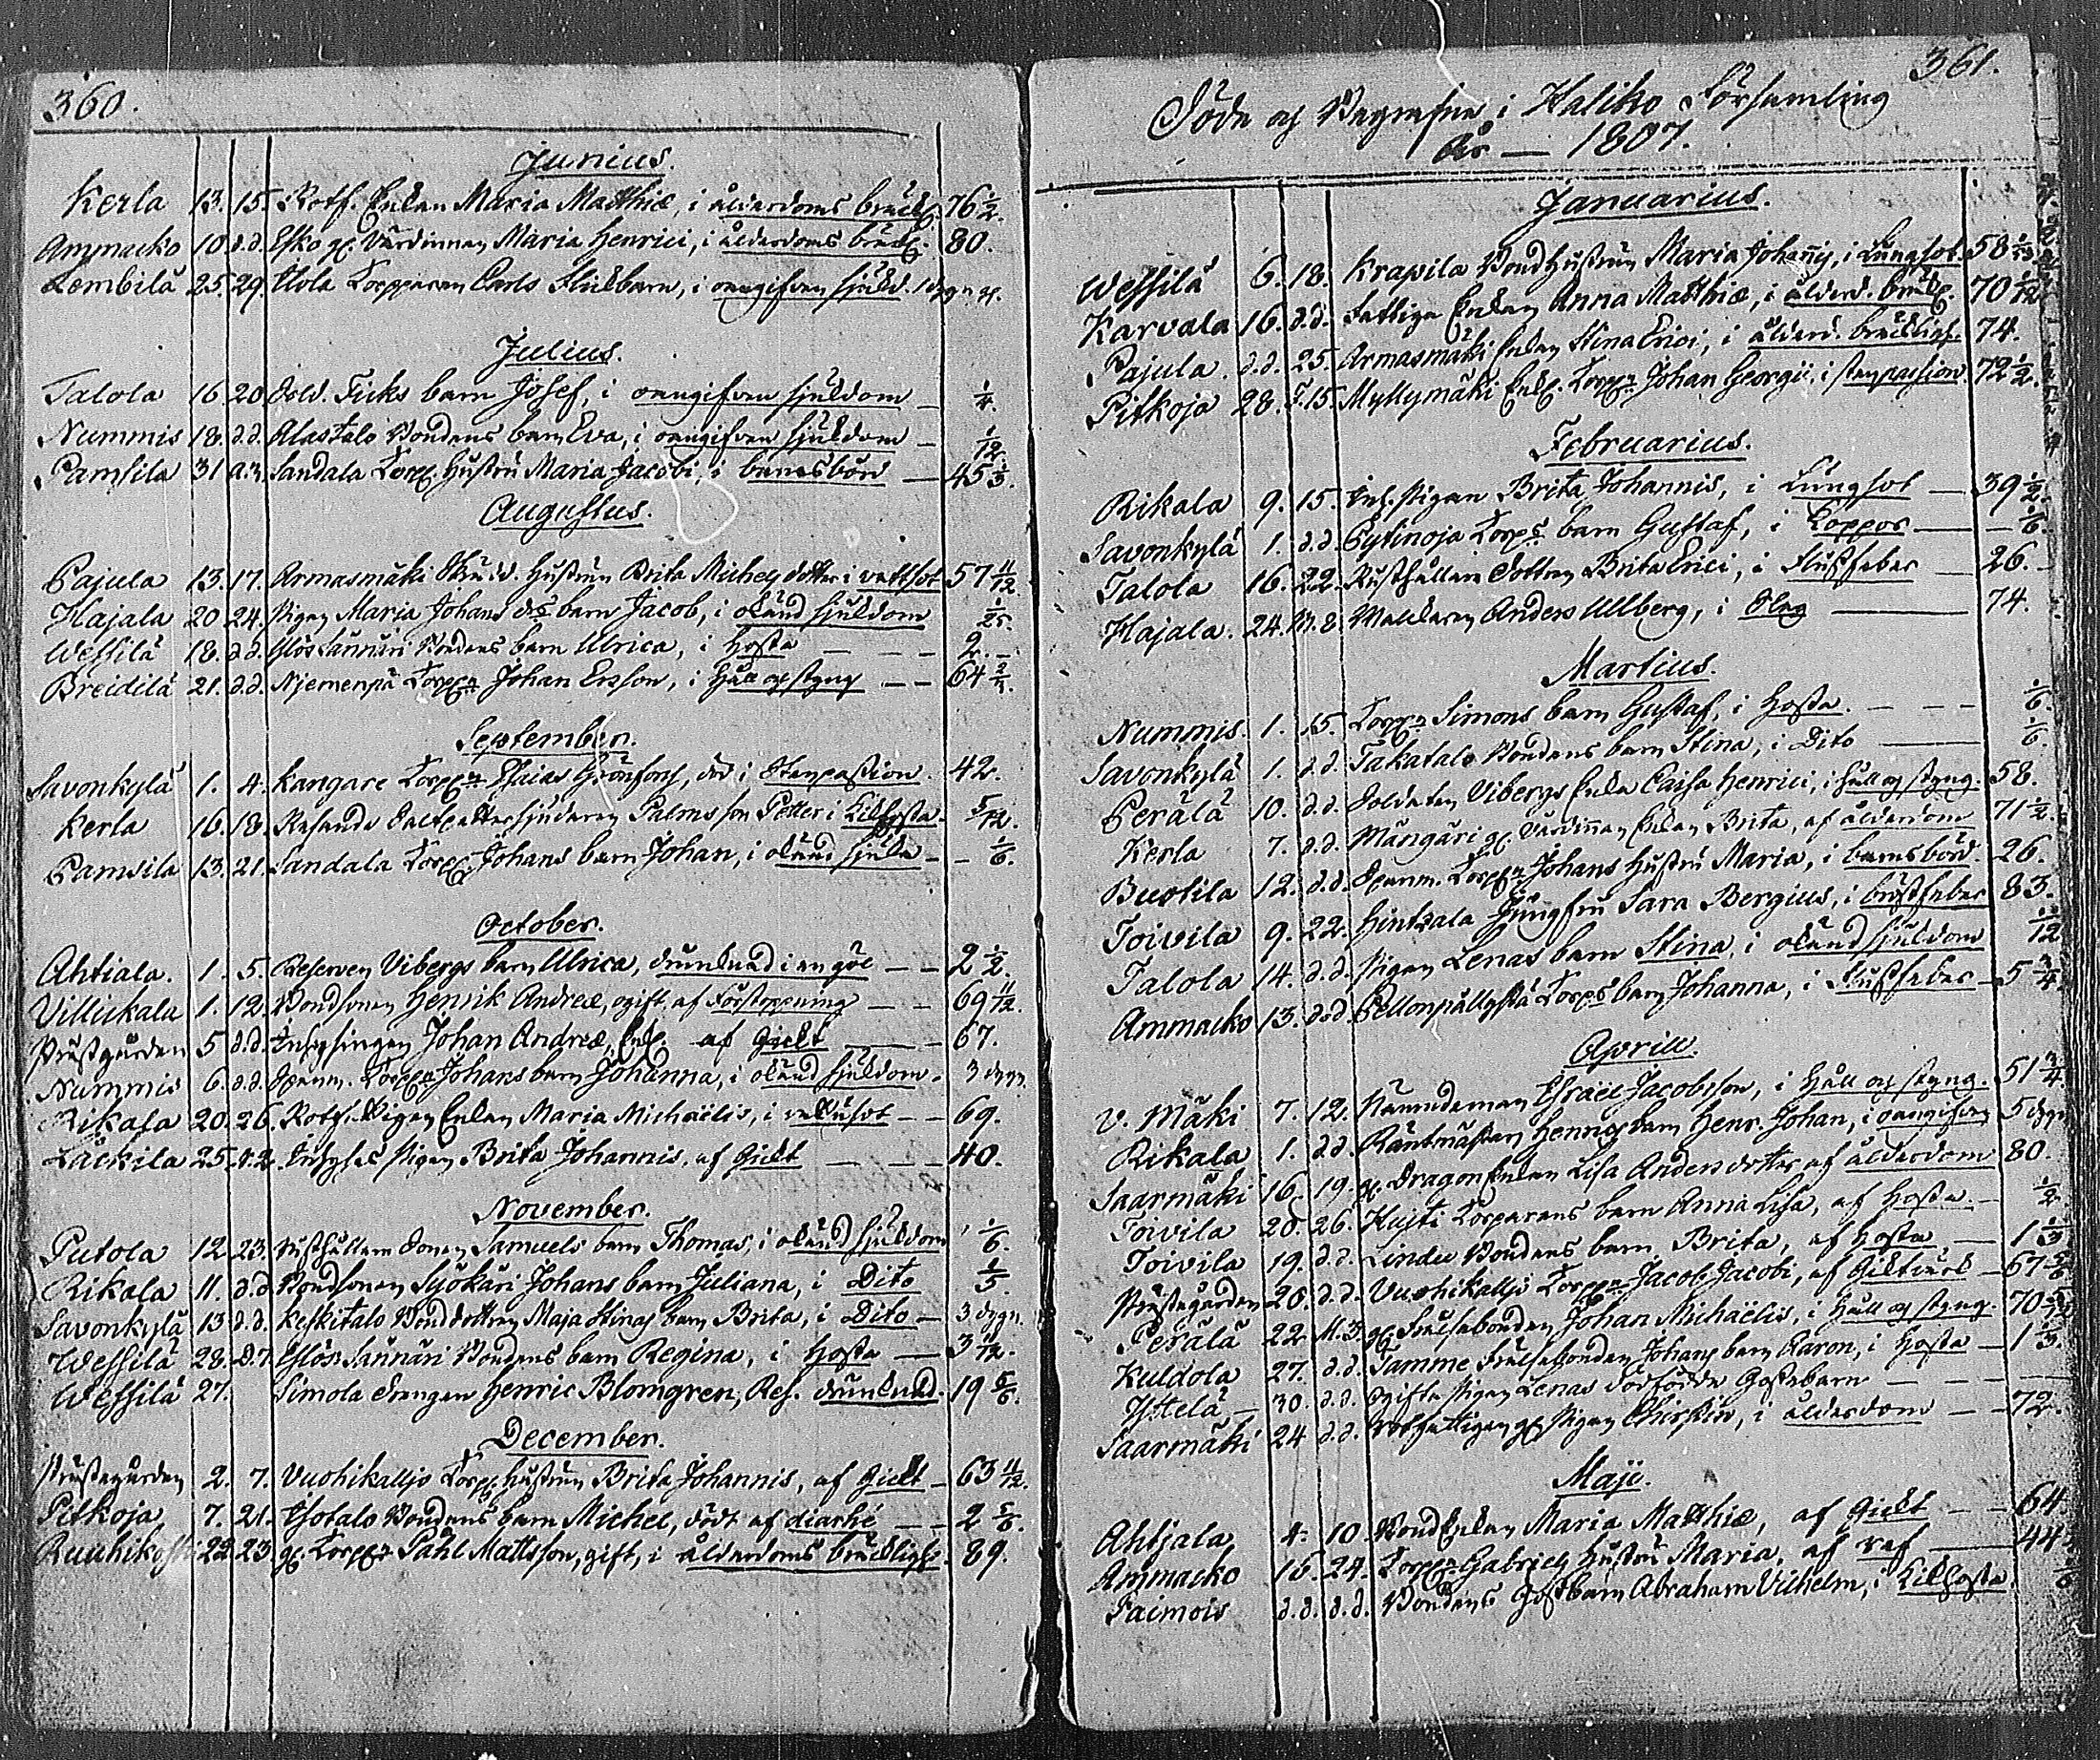 360.
Junius.
Kerla 13. 15. Rotf. Enkan Maria Matthiæ, i ålderdoms bräckl. 76 1/2.
Ammacko 10. d.d. Esko gl. Värdinnan Maria Henrici, i ålderdoms bräckl. 80.
Lembilä 25. 29. Uola Torpparen Carls flickbarn, i oangifven sjukd. 1 dygn gl.
Julius.
Talola 16 20 Sold. Ficks barn Josef, i oangifven sjukdom — 1/4.
Nummis 18. d.d. Alastalo Bondens barn Eva, i oangifven sjukdom — 1/12.
Pamsila 31 a.3. Sandala Torp. hustru Maria Jacobi, i barnsbörd — 45 1/3.
Augustus.
Pajula 13. 17. Armasmäki Skrädd. Hustrun Brita Michels dotter i vattsot 57 11/12
Hajala 20 24. Pigan Maria Johans ds barn Jacob, i okänd sjukdom
Wessilä 18. d.d. Yliöstännäri Bondens barn Ulrica, i Hosta — — — 2. —
Breidilä 21. d.d. Njemenpä Torpn Johan Ersson, i Håll och styng — — 64
September.
Savonkylä 1. 4. Kangare Torpn Esaias Grönfors, död i Stenpassion. 42.
Kerla 16. 18. Resande Salpettersjudaren Palmsson Petter i Kikhosta. 5/12.
Pamsila 13. 21. Sandala Torp. Johans barn Johan, i okänd sjukd. — — 1/6.
October.
Ahtiala. 1. 5. Reserven Vibergs barn Ulrica, drunknad i en göl — — 2 1/2.
Villickala 1. 12. Bondsonen Henrik Andreæ, ogift, af Förstoppning — — 69 11/12.
Prästgården 5 d.d. Inhysingen Johan Andreæ, Enk. af Gickt — — 67.
Nummis 6. d.d. Spanm. Torpn Johans barn Johanna, i okänd sjukdom. 3 dygn.
Rikala 20. 26. Rotf. Pigan Enkan Maria Michaëlis, i vattusot — — 69.
Läckilä 25. 2. Inhyses Pigan Brita Johannis, af Gickt — — — 40.
November.
Putola 12 23. Rusthållare Sonen Samuels barn Thomas, i okänd sjukdom 1/6.
Rikala 11. d.d. Bondsonen Sjökäri Johans barn Juliana, i Dito 1/5.
Savonkylä 13 d.d. Keskitalo Bonddottren Maja Stinas barn Brita, i Dito — 3 dygn.
Wessilä 28. D.7. Yliös Sännäri Bondens barn Regina, i Hosta — 3 1/12.
Wessilä 27. Simola Drengen Henric Blomgren, Res. drunknad. 19 5/6.
December.
Prästegården 2. 7. Vuohikalljo Torp. hustrun Brita Johannis, af Gickt — 63 11/12.
Pitkoja 7. 21. Isotalo Bondens barn Michel, dödt af diarhé — — 2 5/6.
Ruuhikoski 22 23 gl. Torpn Påhl Mattsson, gift, i ålderdoms bräcklighet. 89.
361.
Döde og Begrafne i Haliko Församling
År — 1807.
Januarius.
Wessilä 6. 18. Krapila Bondhustrun Maria Johannis, i Lungsot 58
Karvala 16. d.d. Fattiga Enkan Anna Matthiæ, i ålderd. bräckl. 70 1/12
Pajula. d.d. 25. Armasmäki Enkan Stina Erici, i ålderd. bräcklighet. 74.
Pitkoja 28. F.15. Myllymäki Enkl. Torpn Johan Georgii, i stenpassion. 72 1/2.
Februarius.
Rikala 9. 15. Inh. Pigan Brita Johannis, i Lungsot — 39 1/2.
Savonkylä 1. d.d. Pytinoja Torps barn Gustaf, i Koppor — — 1/6.
Talola 16. 22. Rusthållare Dottren Brita Erici, i Flussfeber — 26. —
Hajala. 24. M.8. Mackaren Anders Ullberg, i Slag — 74.
Martius.
Nummis. 1. 15. Torpn Simons barn Gustaf, i Hosta. — — — 1/6.
Savonkylä 1. d.d. Takatalo Bondens barn Stina, i Dito — 1/6.
Perälä 10. d.d. Soldaten Vibergs Enka Caisa Henrici, i Håll og styng. 58.
Kerla 7. d.d. Mängäri gl. Värdinnan Enkan Brita, af ålderdom 71 1/2.
Buotila 12. d.d. Spanm. Torpn Johans Hustru Maria, i barnsbörd. 26.
Toivila 9. 22. Hintzala Jungfru Sara Bergius, i bröstfeber 83.
Talola 14. d.d. Pigan Lenas barn Stina, i okänd sjukdom 1/12
Ammacko 13. d.d. Pellonpällystä Torps barn Johanna, i Flussfeber — 5 3/4.
Aprill.
V. Mäki 7. 12. Nämndeman Esräel Jacobsson, i Håll og styng. 51 3/4.
Rikala 1. d.d. Räntmästaren Hennes barn Henr. Johan, i oangifven 5 dygn
Saarmäki 16. 19. gl. Dragon Enkan Lisa Anders dotter af ålderdom 80.
Toivila 20. 26. Hujti Torparens barn Anna Lisa, af Hosta — 1/2
Toivila 19. d.d. Lindu Bondens barn Brita, af Hosta — 1 1/3
Prästegården 20. d.d. Vuohikalljo Torpn Jacob Jacobi, af Gicktvärk — 67
Perälä 22 M.3. gl. Frälsebonden Johan Michaëlis, i Håll og styng. 70
Kuldola 27. d.d. Tamme Frälsebonden Johans barn Aaron, i Hosta — 1 1/3.
Yttelä — 30. d.d. Ogifta Pigan Lenas dödfödde Gossebarn — — —
Saarmäki 24 d.d. Rotfattigen gl. Pigan Chirstin, i ålderdom — — 72.
Maji.
Ahtjala 4. 10. Bond Enkan Maria Matthiæ, af Gickt — — 64
Ammacko 16. 24. Torpn Gabriels hustru Maria, af ref — 44
Paimois d.d. d.d. Bondens Gossbarn Abraham Vilhelm, i Kikhosta